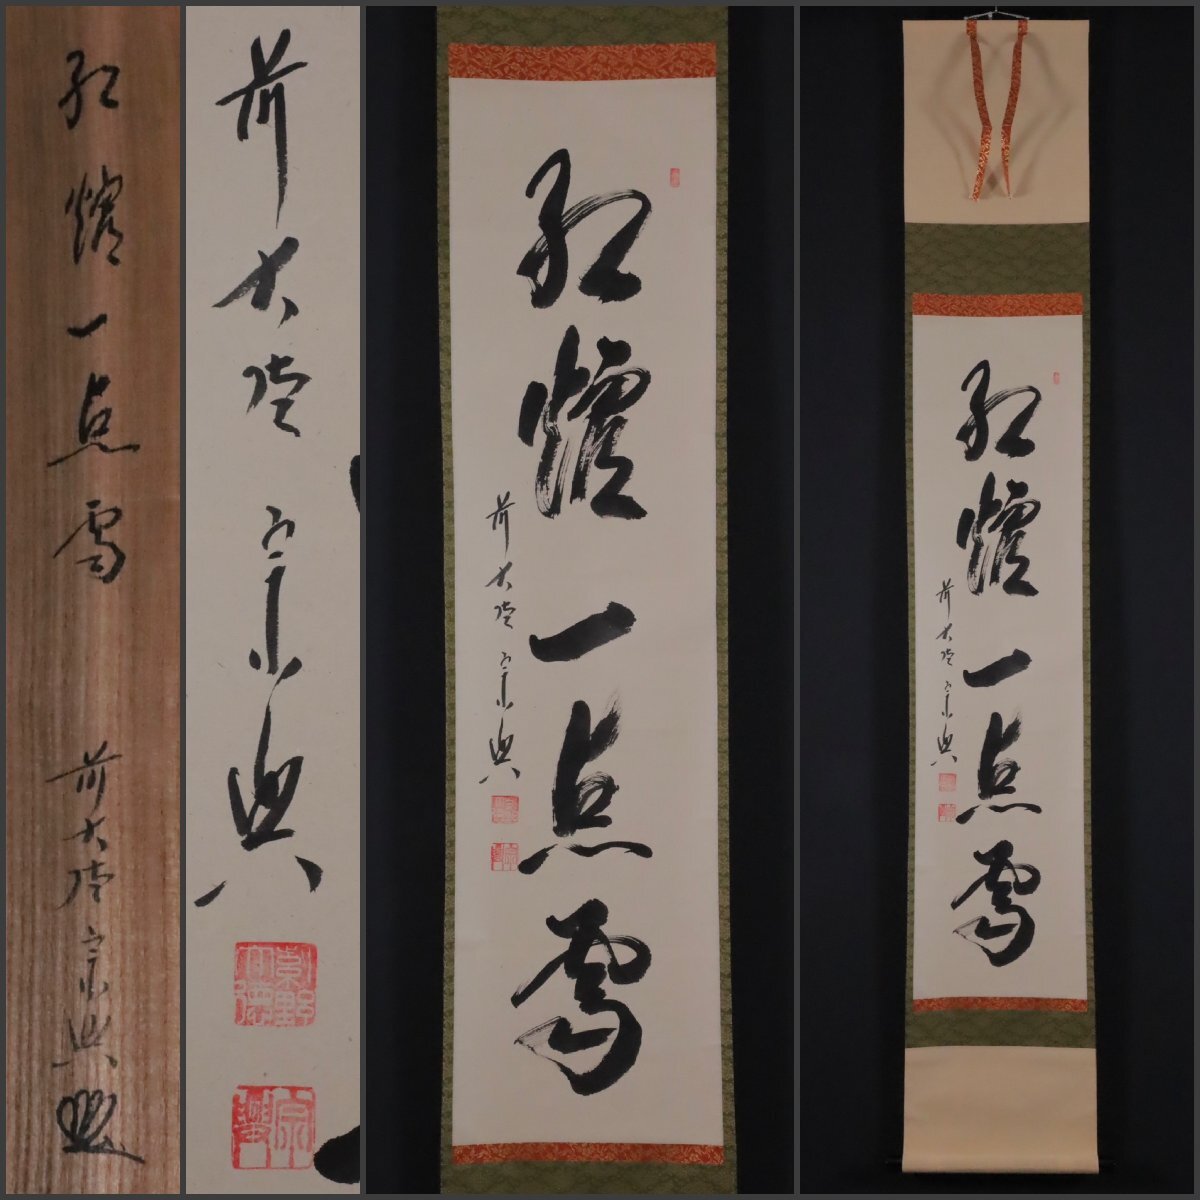 紅爐一点雪
前大徳宗興
前大徳
宗興
紅爐一点雪
前大徳宗興
宗興
紅爐一点雪
前大徳宗興